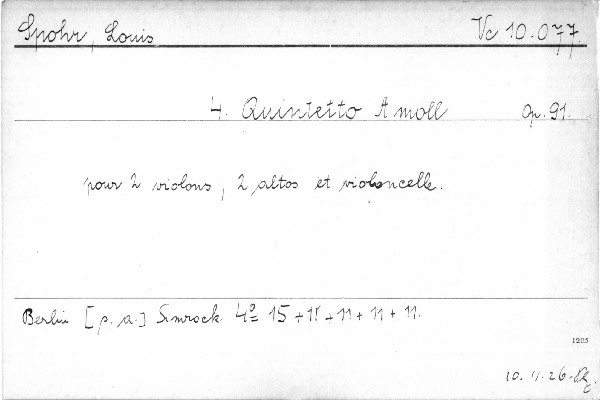 Spohr, Louis Vc 10.077.
4. Quintetto A moll Op. 91.
pour 2 violons, 2 altos et violoncelle.
Berlin [p. a.] Simrock 4º 15 + 11 + 11 + 11 + 11.
1225
10. 11. 26.